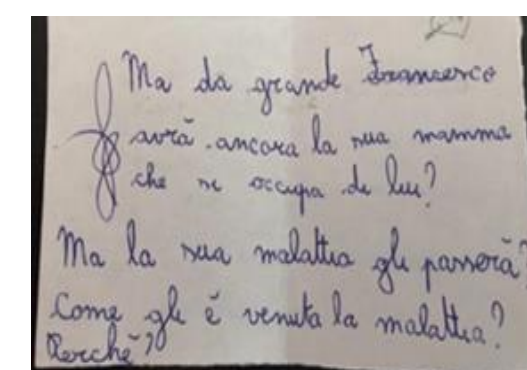 Ma da grande Francesco
avrà ancora la sua mamma
che si occupa di lui?
Ma la sua malattia gli passerà?
Come gli è venuta la malattia?
Perchè?